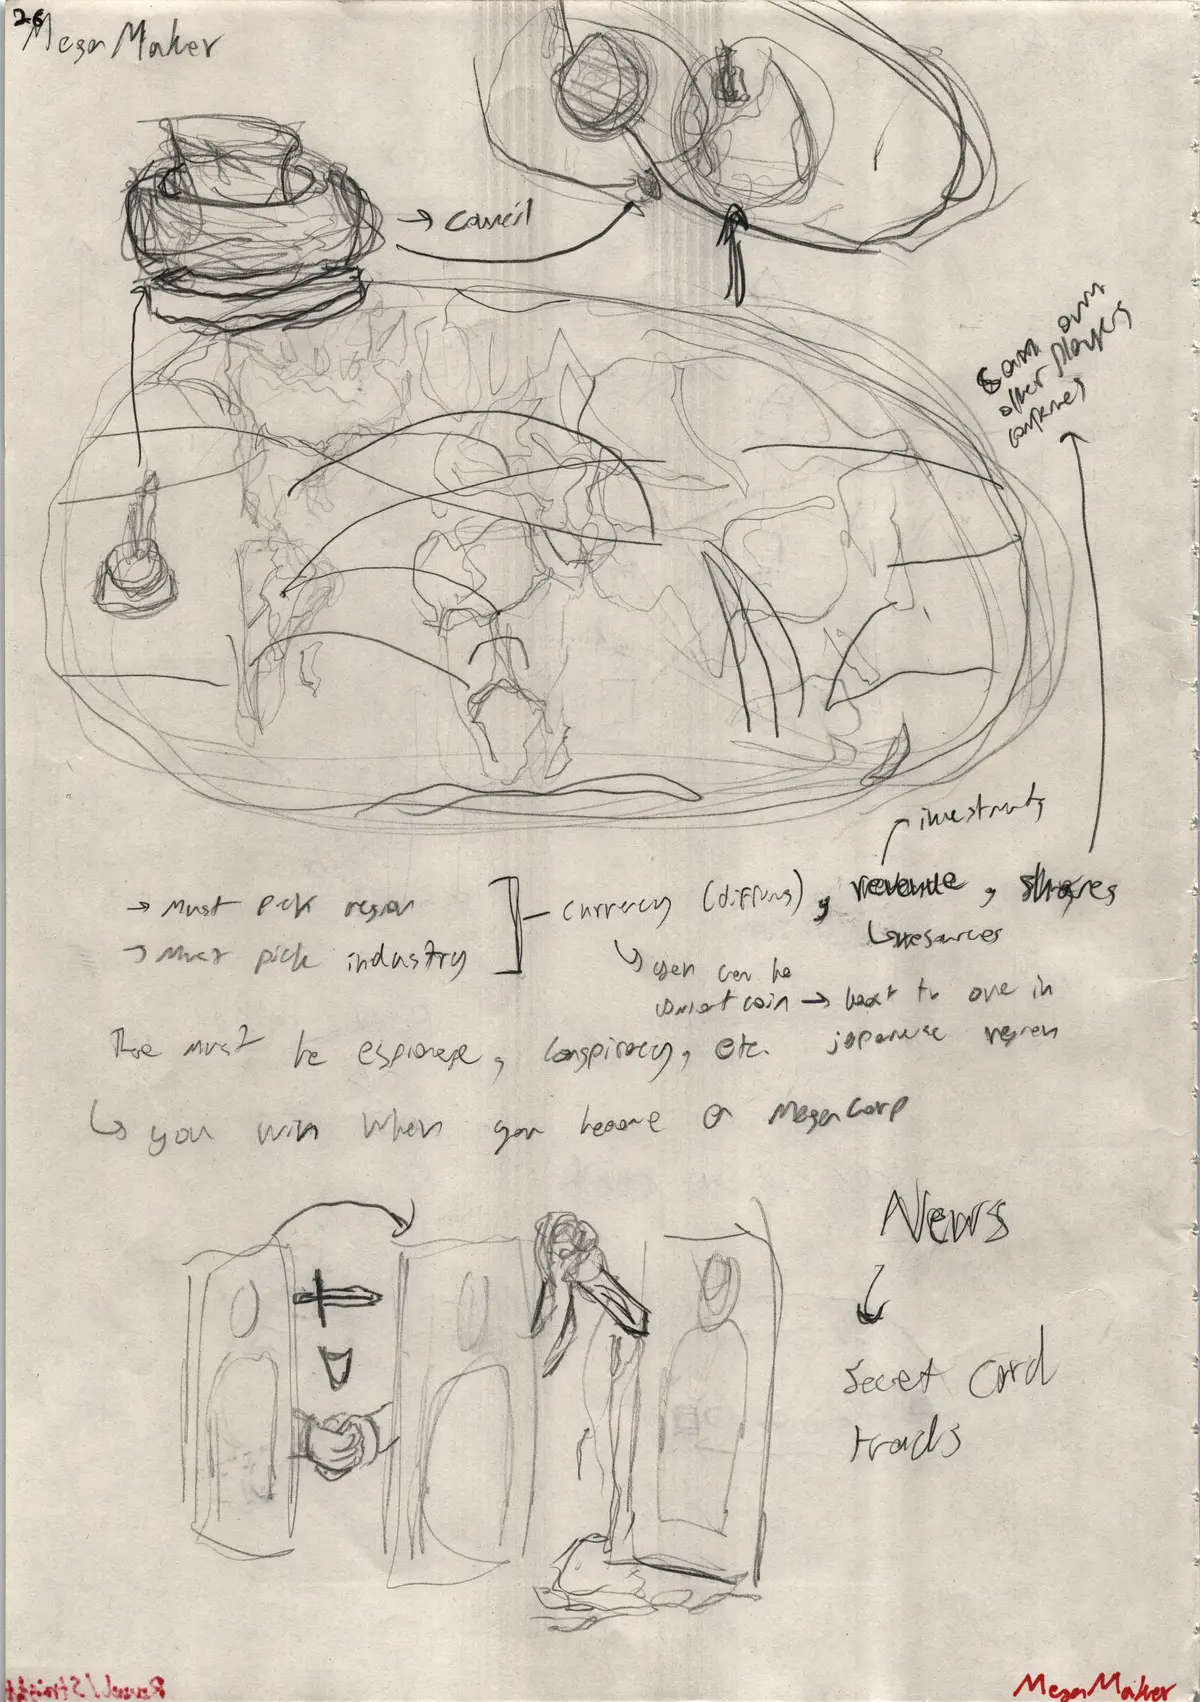 26
Mega Maker
→ Council
Can own
other players
companies
→ investments
→ Must pick region
→ Must pick industry
currency (differs), revenue, shares
↳ resources
↳ yen can be
→ best to one in
japanese region
There must be espionage, conspiracy, etc.
↳ you win when you become a MegaCorp
News
Secret Card
tracks
Mega Maker